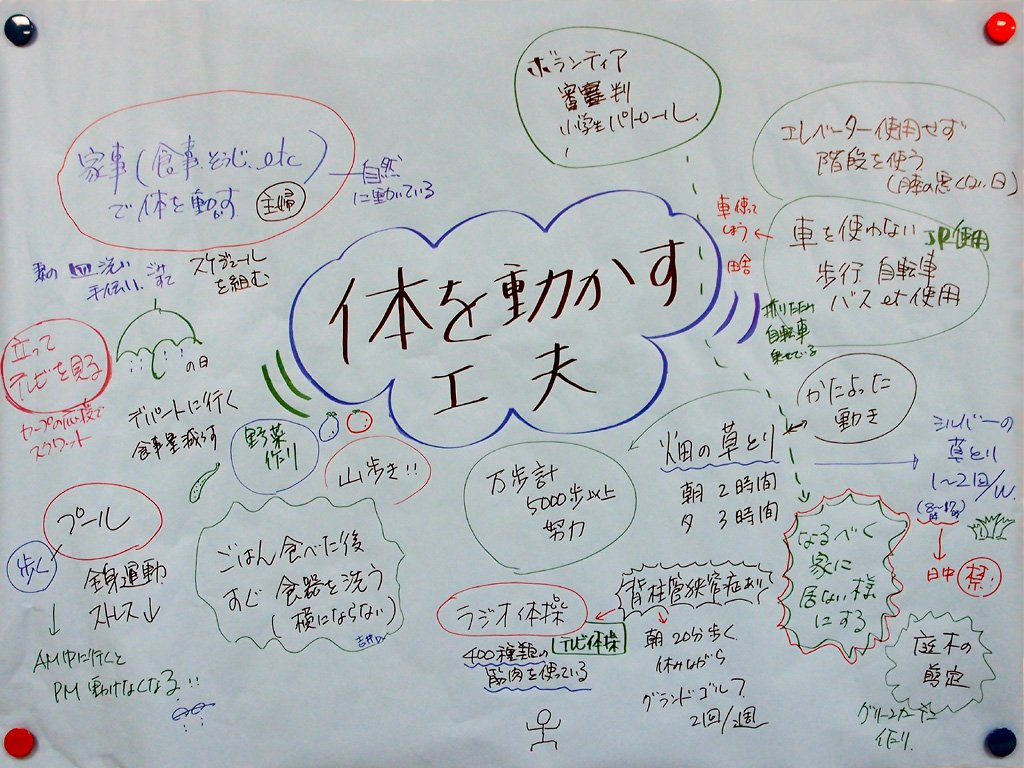 ボランティア
審判
小学生パトロール
家事(食事.そうじ.etc
で体を動かす
主婦
自然
に動いている
エレベーター使用せず
階段を使う
(膝の悪くない日)
車使って
しまう
田舎
車を使わない
JR使用
歩行 自転車
バスet使用
折りたたみ
自転車
乗せている
体を動かす
工夫
妻の皿洗い
手伝い
スケジュール
を組む
の日
デパートに行く
食事量減らす
立って
テレビを見る
カープの応援で
スクワット
野菜
作り
山歩き!!
万歩計
5000歩以上
努力
畑の草とり
朝 2時間
夕 3時間
かたよった
動き
シルバーの
草とり
1〜2回/W.
日中
禁!
プール
歩く
全身運動
ストレス↓
AM中に行くと
PM動けなくなる!!
ごはん食べた後
すぐ食器を洗う
(横にならない)
ラジオ体操
テレビ体操
400種類の
筋肉を使っている
脊柱管狭窄症あり
朝20分歩く
休みながら
グランドゴルフ
2回/週
なるべく
家に
居ない様
にする
庭木の
剪定
グリーンカーテン
作り